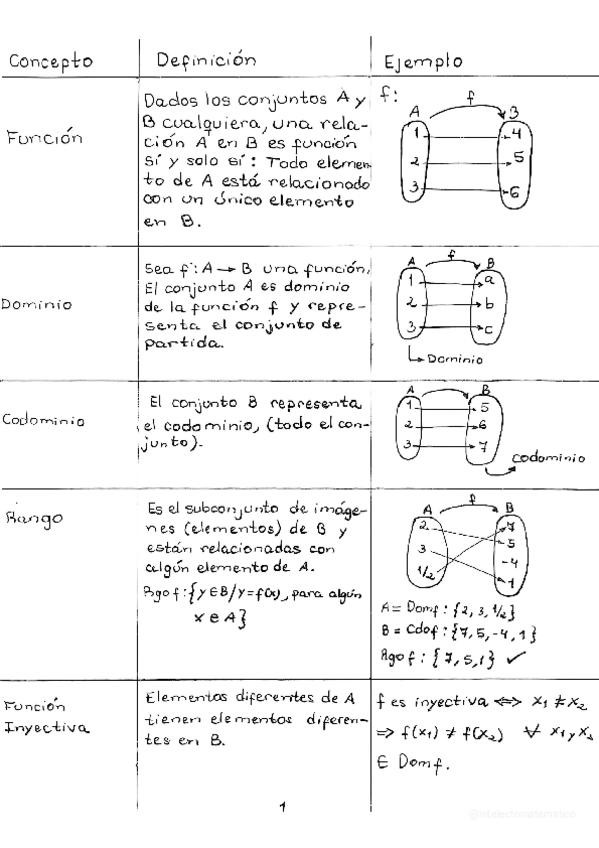 Concepto
Definición
Ejemplo
Función
Dados los conjuntos A y
B cualquiera, una rela-
ción A en B es función
sí y solo sí: Todo elemen
to de A está relacionado
con un único elemento
en B.
f:
f
A
B
1
4
2
5
3
6
Dominio
Sea f: A → B una función,
El conjunto A es dominio
de la función f y repre-
senta el conjunto de
partida.
f
A
B
1
a
2
b
3
c
Dominio
Codominio
El conjunto B representa
el codominio, (todo el con-
junto).
A
B
1
5
2
6
3
7
codominio
Rango
Es el subconjunto de imáge-
nes (elementos) de B y
están relacionadas con
algún elemento de A.
Rgo f:{y∈B/y=f(x), para algún
x ∈ A}
f
A
B
2
7
5
3
-4
1/2
1
A = Domf: {2, 3, 1/2}
B = Cdof: {7, 5, -4, 1}
Rgo f: {7, 5, 1} ✓
Función
Inyectiva
Elementos diferentes de A
tienen elementos diferen-
tes en B.
f es inyectiva ⟺ x₁ ≠ x₂
⇒ f(x₁) ≠ f(x₂) ∀ x₁ y x₂
∈ Domf.
1